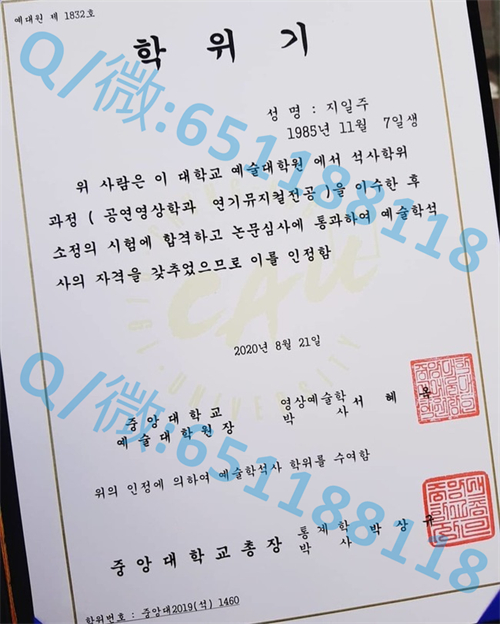 예대원 제 1832호
학 위 기
성 명 : 지일주
1985년 11월 7일생
위 사람은 이 대학교 예술대학원 에서 석사학위
과정 ( 공연영상학과 연기뮤지컬전공 )을 이수한 후
소정의 시험에 합격하고 논문심사에 통과하여 예술학석
사의 자격을 갖추었으므로 이를 인정함
CAU
UNIVERSITY
2020년 8월 21일
중 앙 대 학 교
예 술 대 학 원 장
영상예술학
박 사 서 혜 옥
위의 인정에 의하여 예술학석사 학위를 수여함
중 앙 대 학 교 총 장
통 계 학
박 사 박 상 규
학위번호 : 중앙대2019(석) 1460
Q/微:651188118
Q/微:651188118